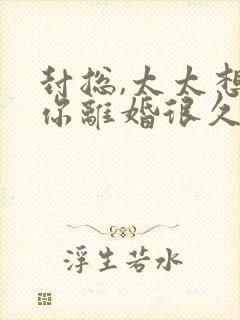 封总,太太想
你離婚很久
浮生若水